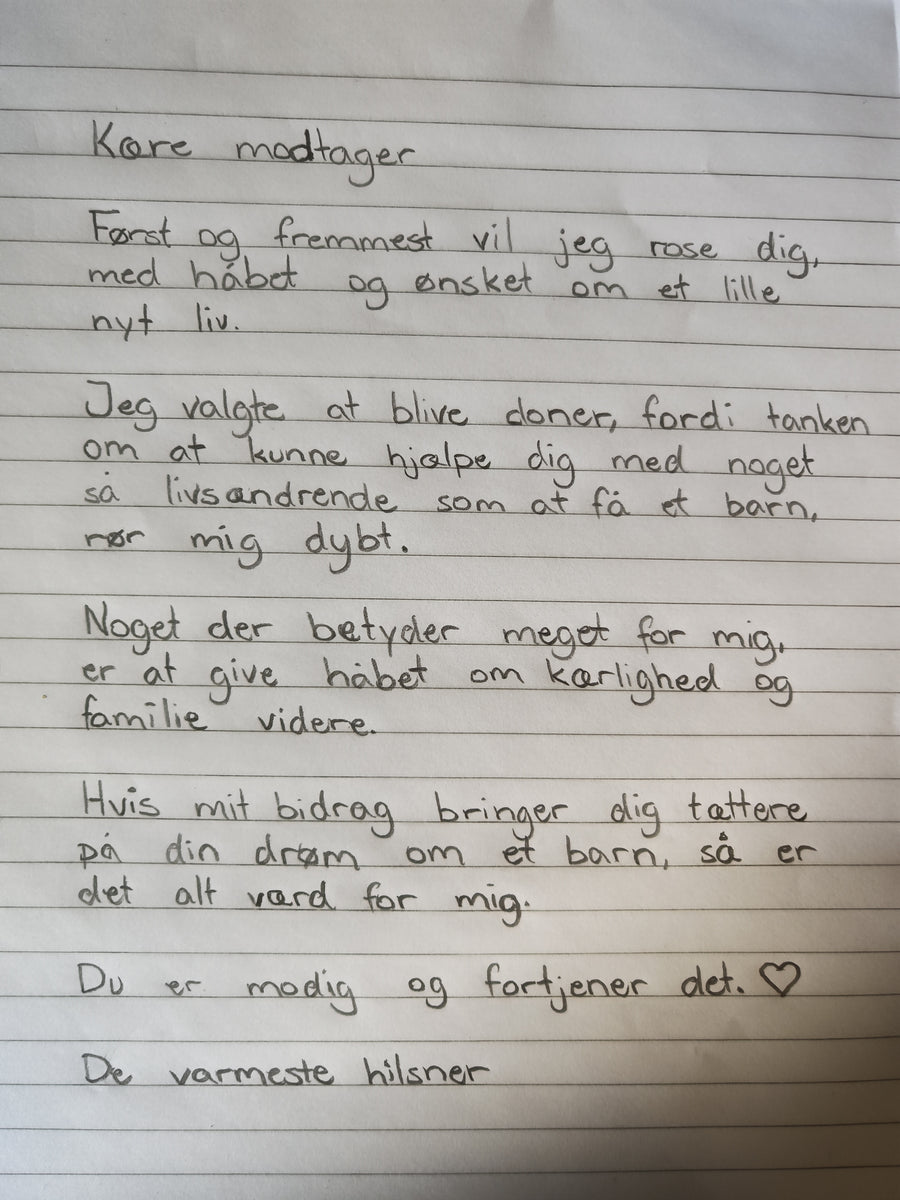 Kære modtager
Først og fremmest vil jeg rose dig,
med håbet og ønsket om et lille
nyt liv.
Jeg valgte at blive doner, fordi tanken
om at kunne hjælpe dig med noget
så livsændrende som at få et barn,
rør mig dybt.
Noget der betyder meget for mig,
er at give håbet om kærlighed og
familie videre.
Hvis mit bidrag bringer dig tættere
på din drøm om et barn, så er
det alt værd for mig.
Du er modig og fortjener det. ♡
De varmeste hilsner